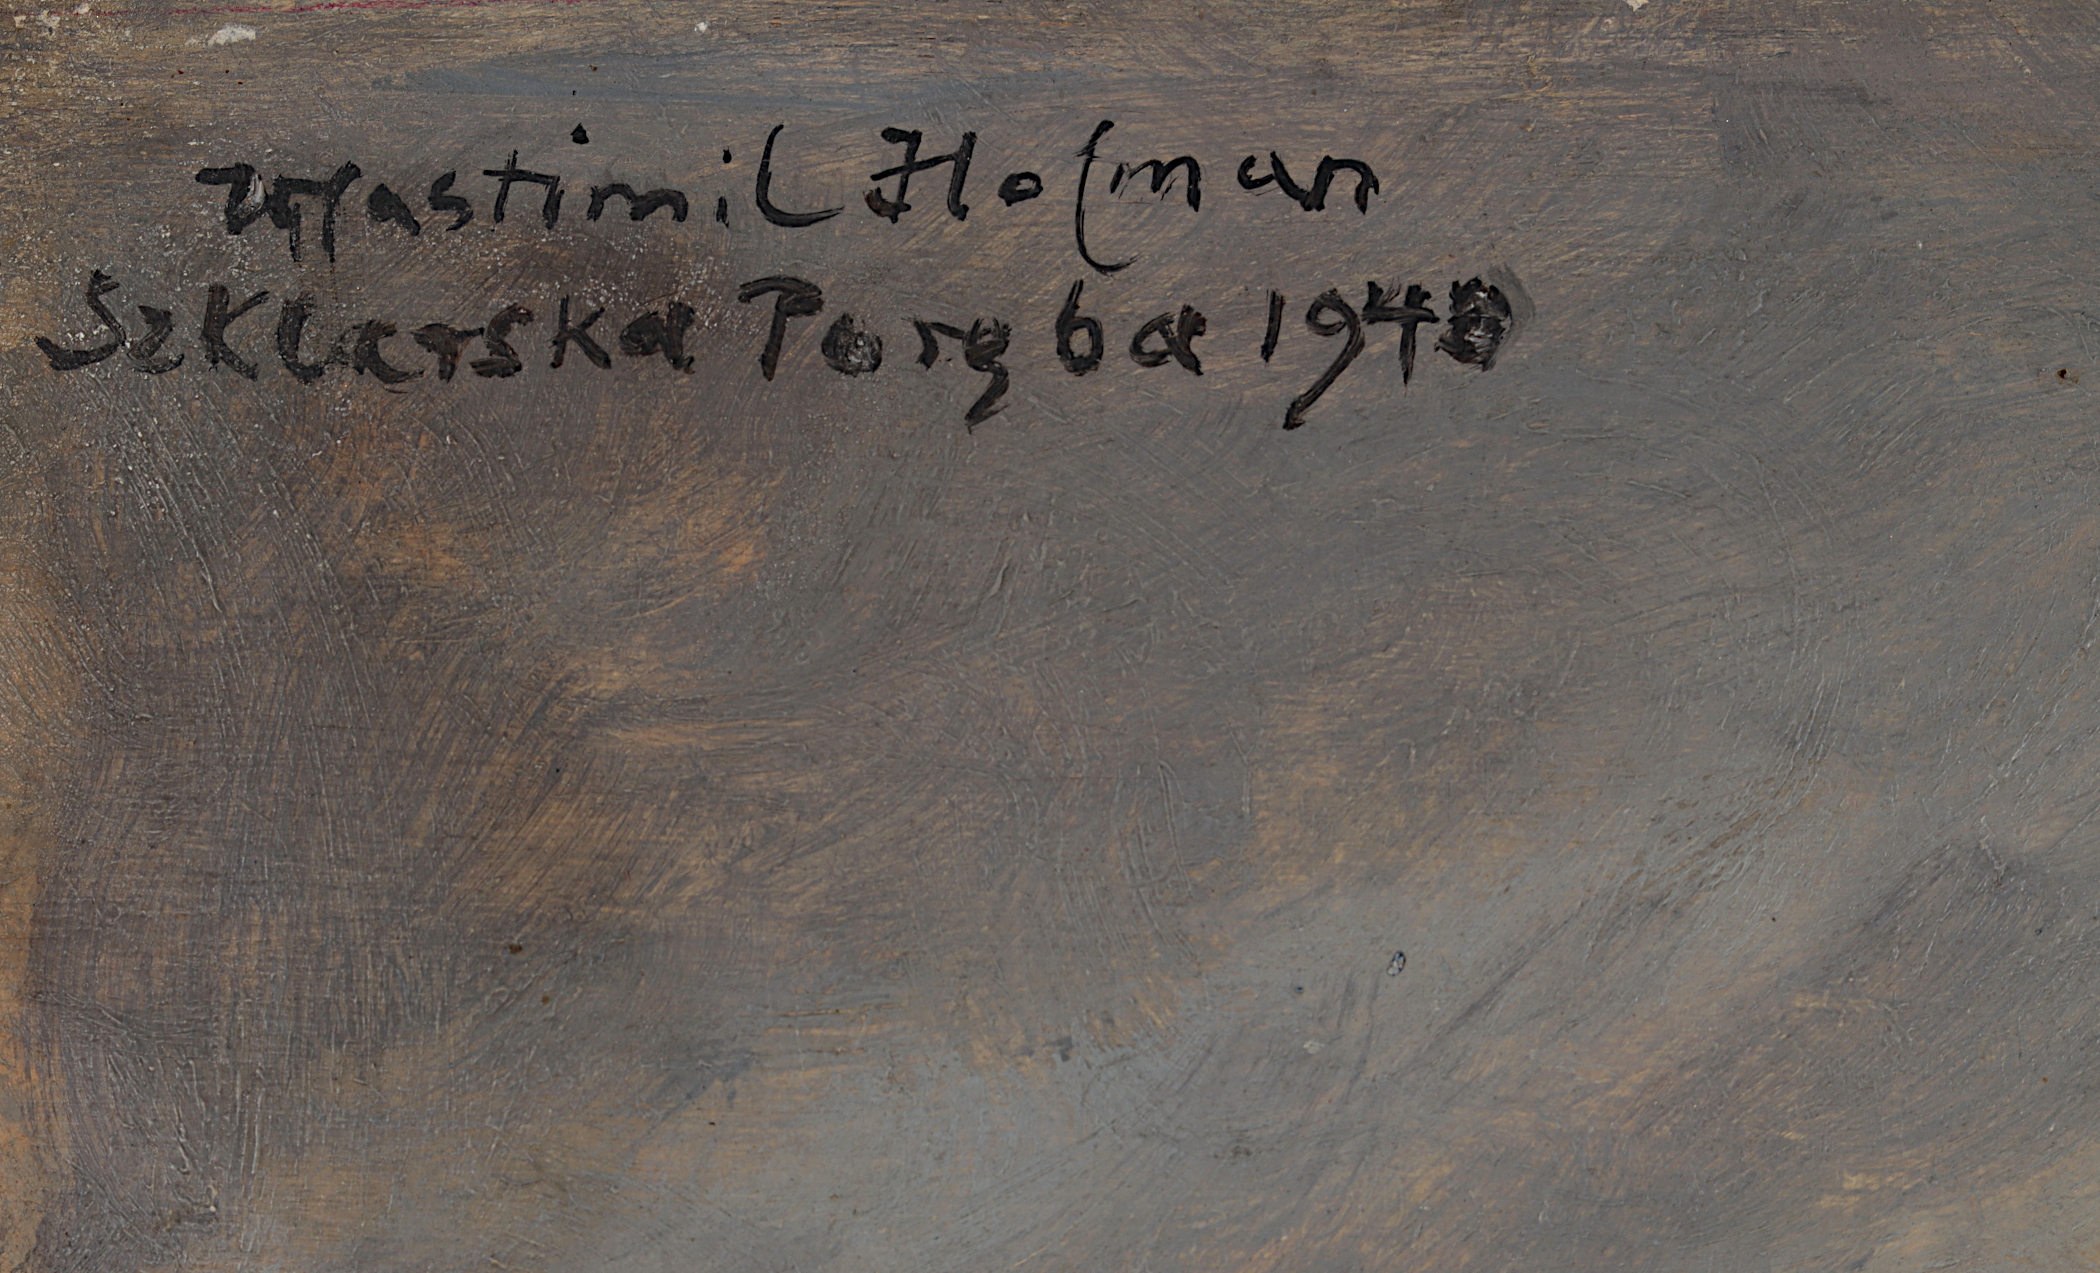 Wlastimil Hofman
Szklarska Poręba 1948